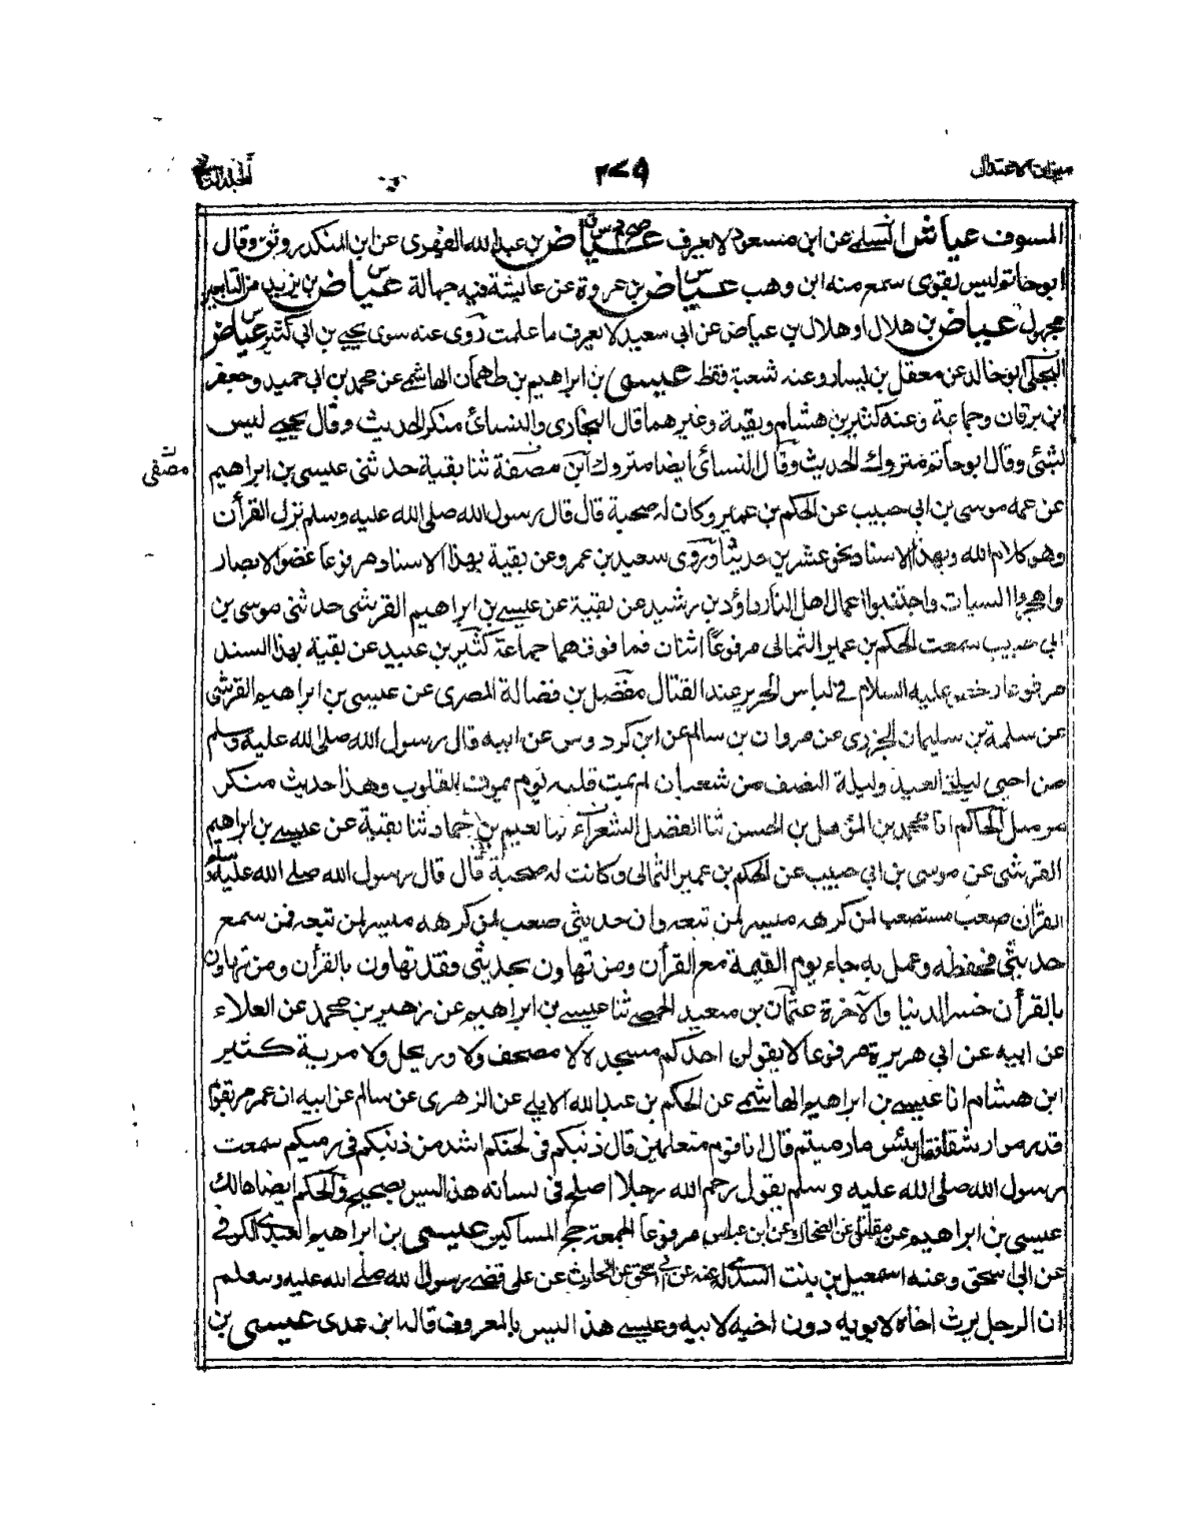 ميزان الاعتدال
٢٧٩
المجلد الثاني
المسوف عياش السلمي عن ابن مسعود لا يعرف عياض بن عبد الله الفهري عن ابن المنكدر وثق وقال
ابو حاتم ليس بقوى سمع منه ابن وهب عياض بن عروة عن عائشة فيه جهالة عياض بن يزيد من التابعين
مجهول عياض بن هلال او هلال بن عياض عن ابي سعيد لا يعرف ما علمت روى عنه سوى يحيى بن ابي كثير عياض
البجلي ابو خالد عن معقل بن يسار وعنه شعبة فقط عيسى بن ابراهيم بن طهمان الهاشمي عن محمد بن ابي حميد وجعفر
ابن برقان وجماعة وعنه كثير بن هشام وبقية وغيرهما قال البخارى والنسائ منكر الحديث وقال يحيى ليس
بشئ وقال ابو حاتم متروك الحديث وقال النسائى ايضا متروك ابن مصفة ثنا بقية حدثنى عيسى بن ابراهيم
مصفى
عن عمه موسى بن ابي حبيب عن الحكم بن عمير وكان له صحبة قال قال رسول الله صلى الله عليه وسلم نزل القرأن
وهو كلام الله وبهذا الاسناد نحو عشرين حديثا وروى سعيد بن عمرو عن بقية بهذا الاسناد مرفوعا غضوا الابصار
واهجروا السيات واجتنبوا اعمال اهل النار داؤد بن رشيد عن بقية عن عيسى بن ابراهيم القرشى حدثنى موسى بن
ابي حبيب سمعت الحكم بن عمير الثمالى مرفوعا اثنان فما فوقهما جماعة كثير بن عبيد عن بقية بهذا السند
مرفوعا رخص عليه السلام في لباس الحرير عند القتال مفضل بن فضالة المصرى عن عيسى بن ابراهيم القرشى
عن سلمة بن سليمان الجزرى عن مروان بن سالم عن ابن كردوس عن ابيه قال رسول الله صلى الله عليه وسلم
من احيى ليلة العيد وليلة النصف من شعبان لم يمت قلبه يوم يموت القلوب وهذا حديث منكر
مرسل الحاكم انا محمد بن المؤمل بن الحسن ثنا الفضل الشعرانى ثنا نعيم بن حماد ثنا بقية عن عيسى بن ابراهيم
القرشى عن موسى بن ابي حبيب عن الحكم بن عمير الثمالى وكانت له صحبة قال قال رسول الله صلى الله عليه وسلم
القرأن صعب مستصعب لمن كرهه ميسر لمن تبعه وان حديثي صعب لمن كرهه ميسر لمن تبعه فمن سمع
حديثي فحفظه وعمل به جاء يوم القيمة مع القرأن ومن تهاون بحديثي فقد تهاون بالقرأن ومن تهاون
بالقرأن خسر الدنيا والآخرة عثمان بن سعيد الحمصى ثنا عيسى بن ابراهيم عن زهير بن محمد عن العلاء
عن ابيه عن ابي هريرة مرفوعا لا يقولن احدكم مسجد لا لا مصحف ولا وريجل ولا مرية كثير
ابن هشام انا عيسى بن ابراهيم الهاشمى عن الحكم بن عبد الله الايلى عن الزهرى عن سالم عن ابيه ان عمر مر بقوم
قد رموا رشقا فقال بئس ما رميتم قال انا قوم متعلمين قال ذنبكم فى لحنكم اشد من ذنبكم فى رميكم سمعت
رسول الله صلى الله عليه وسلم يقول رحم الله رجلا اصلح فى لسانه هذا ليس بصحيح والحكم ايضا هالك
عيسى بن ابراهيم عن مقاتل عن الضحاك عن ابن عباس مرفوعا الجمعة حج المساكين عيسى بن ابراهيم العبدى الكوفى
عن ابى اسحق وعنه اسمعيل بن بنت السدى له عنه عن ابى اسحق عن الحارث عن على قضى رسول الله صلى الله عليه وسلم
ان الرجل يرث اخاه لابويه دون اخيه لابيه وعيسى هذا ليس بالمعروف قاله ابن عدى عيسى بن